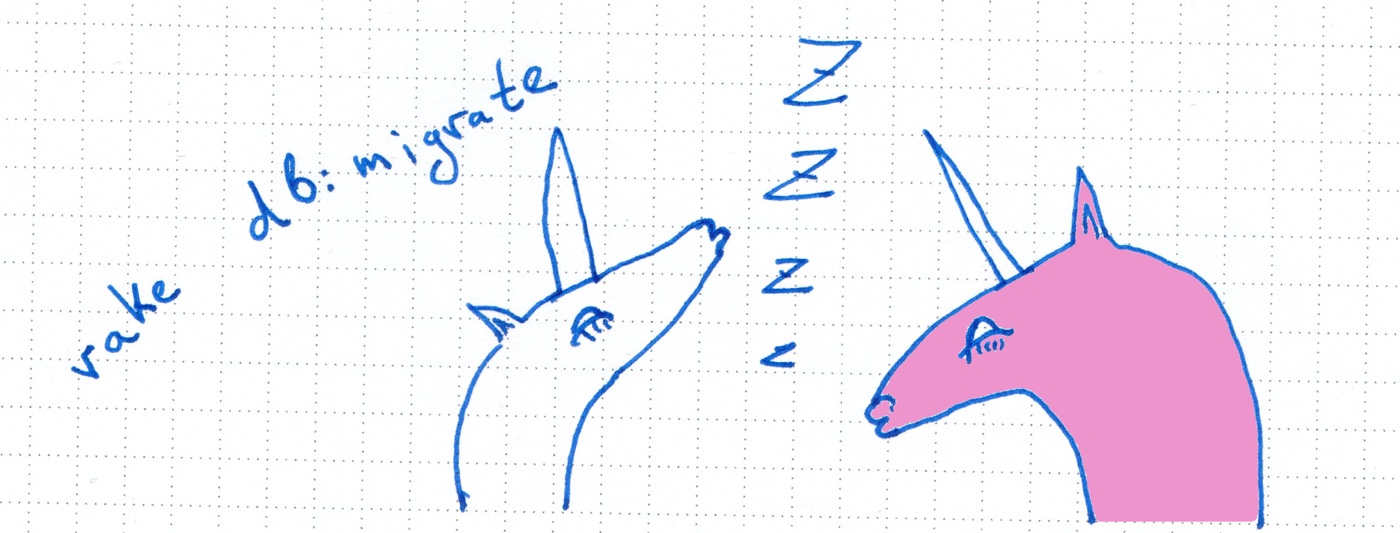 rake db:migrate
Z
Z
Z
z